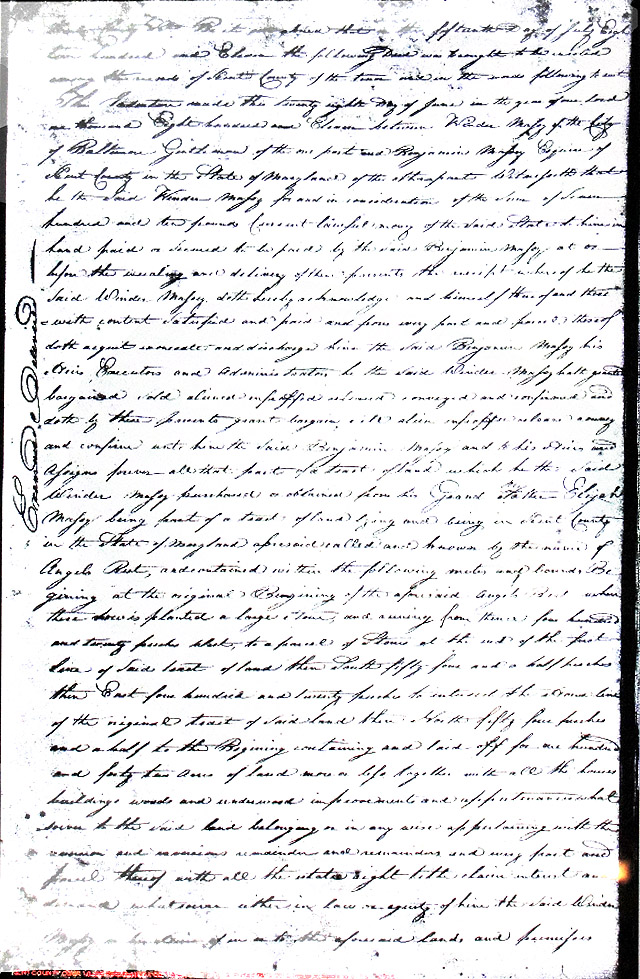 County Be it remembered that on the fifteenth Day of July Eigh
teen hundred and Eleven the following Deed was brought to be inrolled
among the records of Kent County of the tenor and in the words following to wit
This Indenture made this twenty eighth Day of June in the year of our lord
one thousand Eight hundred and Eleven between Winder Massy of the City
of Baltimore Gentleman of the one part and Benjamin Massy Esquire of
Kent County in the State of Maryland of the other part Witnesseth that
he the Said Winder Massy for and in consideration of the Sum of Seven
hundred and ten pounds Current lawful money of the Said State to him in
hand paid or Secured to be paid by the said Benjamin Massy at or
before the ensealing and delivery of these presents the receipt whereof he the
Said Winder Massy doth hereby acknowledge and himself thereof and there
with content Satisfied and paid and from every part and parcel thereof
doth acquit exonerate and discharge him the Said Benjamin Massy his
Heirs Executors and Administrators he the said Winder Massy hath granted
bargained sold aliened enfeoffed released conveyed and confirmed and
doth by these presents grant bargain sell alien enfeoff release convey
and confirm unto him the Said Benjamin Massy and to his Heirs and
Assigns forever all that part of a tract of land which he the Said
Winder Massy purchased or obtained from his Grand Father Elijah
Massy being part of a tract of land lying and being in Kent County
in the State of Maryland aforesaid called and known by the name of
Angels Rest, and contained within the following metes and bounds Be
gining at the original Begining of the aforesaid Angels Rest where
there now is planted a large Stone, and runing from thence four hundred
and twenty perches West, to a parcel of Stones at the end of the first
line of Said tract of land then South fifty four and a half perches
then East four hundred and twenty perches to intersect the line
of the original tract of Said land then North fifty four perches
and a half to the Begining containing and laid off for one hundred
and forty two Acres of land more or less together with all the houses
buildings woods and underwood improvements and appertenances what
soever to the Said land belonging or in any wise appertaining with the
reversion and reversions remainder and remainders and every part and
parcel thereof with all the estate right title claim interest and
demand whatsoever either in law or equity of him the Said Winder
Massy of in or to the aforesaid lands and premises
Examined & Delivered